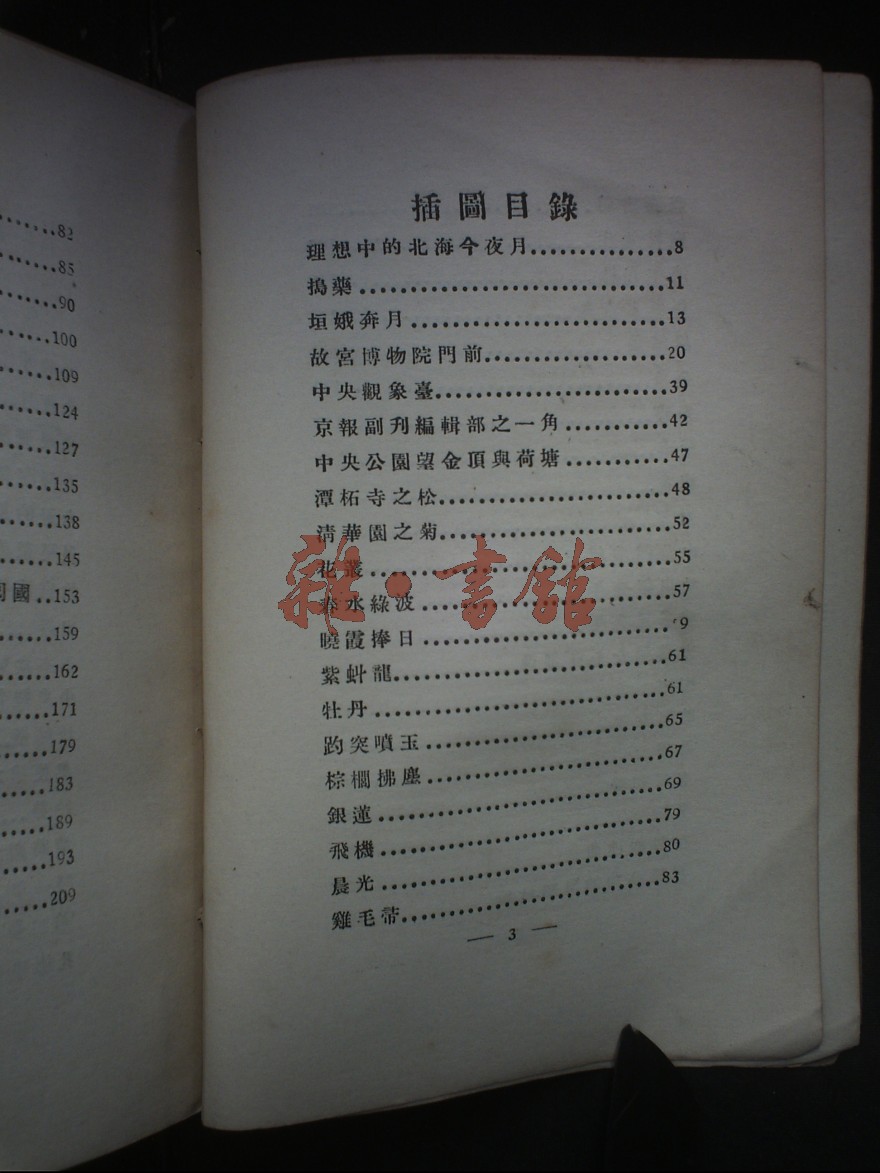 82
85
90
100
109
124
127
135
138
145
國..153
159
162
171
179
183
189
193
209
插圖目錄
理想中的北海今夜月................8
搗藥....................................11
垣娥奔月..............................13
故宮博物院門前.....................20
中央觀象臺...........................39
京報副刋編輯部之一角............42
中央公園望金頂與荷塘............47
潭柘寺之松...........................48
淸華園之菊...........................52
花叢....................................55
春水綠波..............................57
曉霞捧日..............................9
紫虯龍.................................61
牡丹....................................61
趵突噴玉..............................65
棕櫚拂塵..............................67
銀蓮....................................69
飛機....................................79
晨光....................................80
雞毛帚.................................83
— 3 —
雜·書館